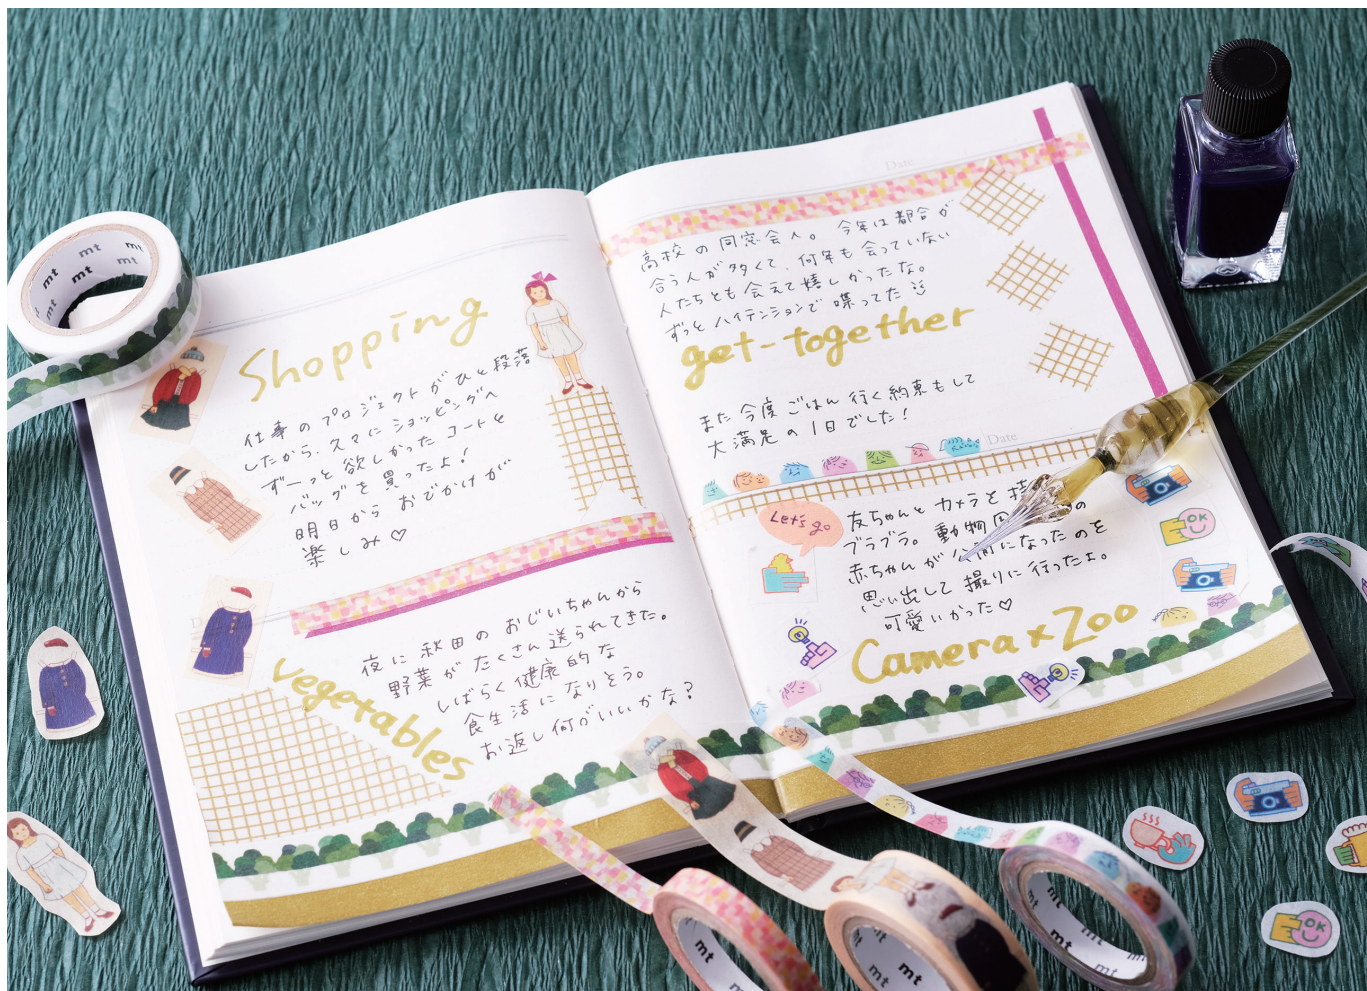 Shopping
仕事のプロジェクトがひと段落
したから、久々にショッピングへ
ずーっと欲しかったコートと
バッグを買ったよ！
明日からおでかけが
楽しみ♡
vegetables
夜に秋田のおじいちゃんから
野菜がたくさん送られてきた。
しばらく健康的な
食生活になりそう。
お返し何がいいかな？
Date
高校の同窓会へ。今年は都合が
合う人が多くて、何年も会っていない
人たちとも会えて嬉しかったな。
ずっとハイテンションで喋ってた
get-together
また今度ごはん行く約束もして
大満足の1日でした！
Date
Let's go
友ちゃんとカメラと
ブラブラ。動物 の
赤ちゃんが公開になったのを
思い出して撮りに行ったよ。
可愛いかった♡
Camera×Zoo
OK
OK
mt
mt
mt
mt
mt
mt
mt
mt
mt
mt
mt